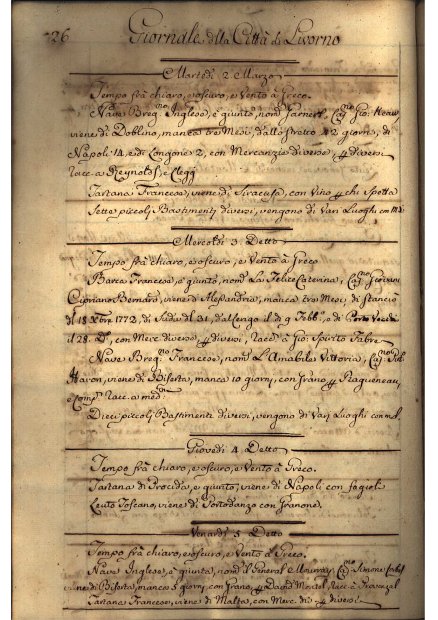 26 Giornale della Città di Livorno
Martedì 2 Marzo
Tempo frà chiaro, e oscuro, e Vento à Greco.
Nave Breg.no Inglese, è giunto, nom.
viene di Doblino, manca tre Mesi, dallo stretto 42 giorni, di
Napoli 14, e di Longone 2, con Mercanzie diverse, p diversi
Racc. a Reynolds, e Clegg
Tartana Francese, viene di Siracusa, con Vino p chi Spetta
Sette piccoli Bastimenti diversi, vengono di Vari Luoghi con
Mercoldì 3. Detto
Tempo frà chiaro, e oscuro, e Vento à Greco
Barca Francese, è giunta, nom. La Felice Caterina, Cap.no
Cipriano Bernard, viene di Alessandria, manca tre Mesi, di stancio
dl 18 Xbre 1772, di dl 31, dal il di 9 Febb.o e di Porto
il 28. D.o, con Merc. diverse p diversi, Racc. a Gio: Spirito Fabre
Nave Breg.no Francese, nom. L'Amabile Vittoria, Cap.no
viene di Biserta, manca 10 giorni, con Grano, p Ragueneau,
e Comp. Racc. a med.mi
Dieci piccoli Bastimenti diversi, vengono di Vari Luoghi con
Giovedì 4 Detto
Tempo frà chiaro, e oscuro, e Vento à Greco.
Tartana di Procida, è giunta, viene di Napoli con fagioli
Leuto Toscano, viene di Portodanzo con Granone.
Venardì 5 Detto
Tempo frà chiaro, e oscuro, e Vento à Greco.
Nave Inglese, è giunta, nom. il General Murray, Cap.no Simone
viene di Biserta, manca 5 giorni, con Grano, p David Racc. a
Tartana Francese, viene di Malta, con Merc. di p diversi